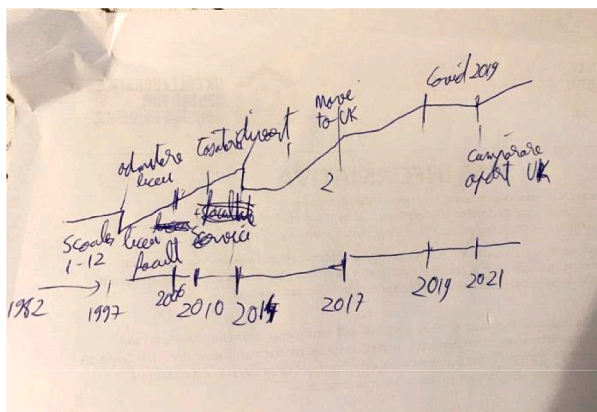 Covid 2019
Move
to UK
divort
admitere
liceu
2
cumpărare
apart UK
Scoala
1-12
liceu
facult
Service
1982
1997
2006
2010
2014
2017
2019
2021